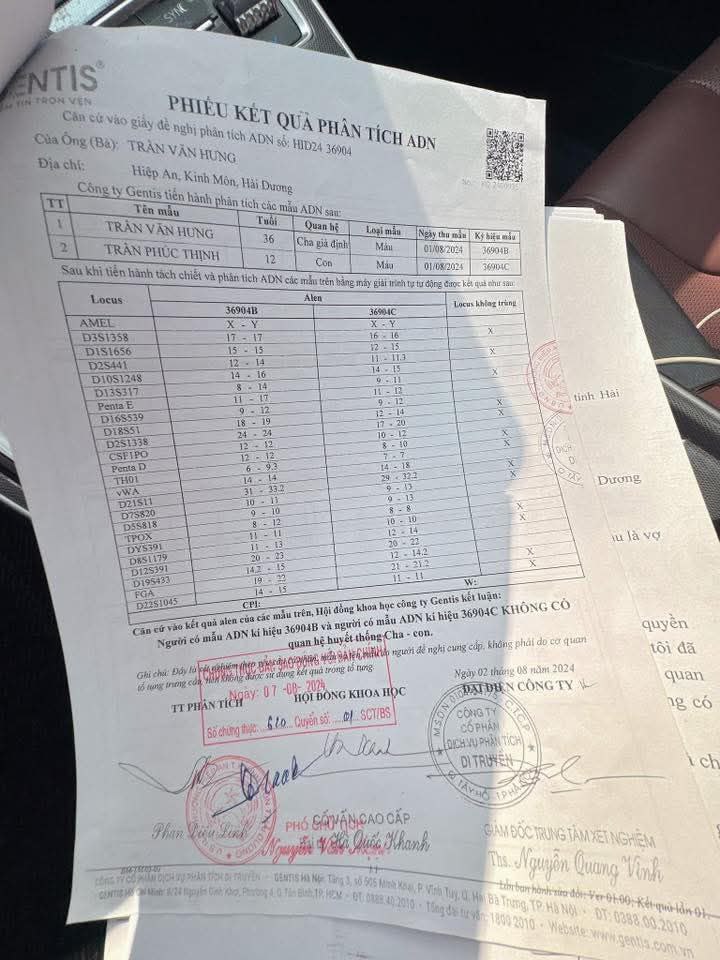 SYNC
GENTIS®
TIN TRỌN VẸN
PHIẾU KẾT QUẢ PHÂN TÍCH ADN
Căn cứ vào giấy đề nghị phân tích ADN số: HID24 36904
Của Ông (Bà): TRẦN VĂN HƯNG
Địa chỉ: Hiệp An, Kinh Môn, Hải Dương
Công ty Gentis tiến hành phân tích các mẫu ADN sau:
TT Tên mẫu Tuổi Quan hệ Loại mẫu Ngày thu mẫu Ký hiệu mẫu
1 TRẦN VĂN HƯNG 36 Cha giả định Máu 01/08/2024 36904B
2 TRẦN PHÚC THỊNH 12 Con Máu 01/08/2024 36904C
Sau khi tiến hành tách chiết và phân tích ADN các mẫu trên bằng máy giải trình tự tự động được kết quả như sau:
Locus Alen Locus không trùng
36904B 36904C
AMEL X - Y X - Y
D3S1358 17 - 17 16 - 16 X
D1S1656 15 - 15 12 - 15
D2S441 12 - 14 11 - 11.3 X
D10S1248 14 - 16 14 - 15
D13S317 8 - 14 9 - 11 X
Penta E 11 - 17 9 - 12 X
D16S539 9 - 12 12 - 14
D18S51 18 - 19 17 - 20 X
D2S1338 24 - 24 10 - 12 X
CSF1PO 12 - 12 8 - 10
Penta D 12 - 12 7 - 7 X
TH01 6 - 9.3 14 - 18 X
vWA 14 - 14 29 - 32.2
D21S11 31 - 33.2 9 - 13
D7S820 10 - 11 9 - 13
D5S818 9 - 10 8 - 8 X
TPOX 8 - 12 10 - 10 X
DYS391 11 - 11 12 - 14
D8S1179 11 - 13 20 - 22
D12S391 20 - 23 12 - 14.2 X
D19S433 14.2 - 15 21 - 21.2 X
FGA 19 - 22 11 - 11
D22S1045 14 - 15
CPI: W:
Căn cứ vào kết quả alen của các mẫu trên, Hội đồng khoa học công ty Gentis kết luận:
Người có mẫu ADN kí hiệu 36904B và người có mẫu ADN kí hiệu 36904C KHÔNG CÓ
quan hệ huyết thống Cha - con.
Ghi chú: Đây là người đề nghị cung cấp, không phải do cơ quan
tố tụng trưng cầu, nên không được sử dụng kết quả trong tố tụng.
CHỨNG THỰC BẢN SAO ĐÚNG VỚI BẢN CHÍNH
Ngày: 07 -08- 2024
Số chứng thực: 610 Quyển số: 01 SCT/BS
Ngày 02 tháng 08 năm 2024
TT PHÂN TÍCH HỘI ĐỒNG KHOA HỌC ĐẠI DIỆN CÔNG TY
CÔNG TY
CỔ PHẦN
DỊCH VỤ PHÂN TÍCH
DI TRUYỀN
Phan Diệu Linh
PHÓ CHỦ TỊCH
CỐ VẤN CAO CẤP
Hà Quốc Khanh
GIÁM ĐỐC TRUNG TÂM XÉT NGHIỆM
Ths. Nguyễn Quang Vinh
Lần ban hành sửa đổi: Ver 01.00; Kết quả lần 01.
CÔNG TY CỔ PHẦN DỊCH VỤ PHÂN TÍCH DI TRUYỀN - GENTIS Hà Nội: Tầng 3, số 505 Minh Khai, P. Vĩnh Tuy, Q. Hai Bà Trưng, TP. Hà Nội - ĐT: 0388.00.2010
GENTIS Hồ Chí Minh: Nguyễn Đình Khơi, Phường 4, Q. Tân Bình, TP. HCM - ĐT: 0888.40.2010 - Tổng đài tư vấn: 1800 2010 - Website: www.gentis.com.vn
tỉnh Hải
Dương
là vợ
quyền
tôi đã
quan
có